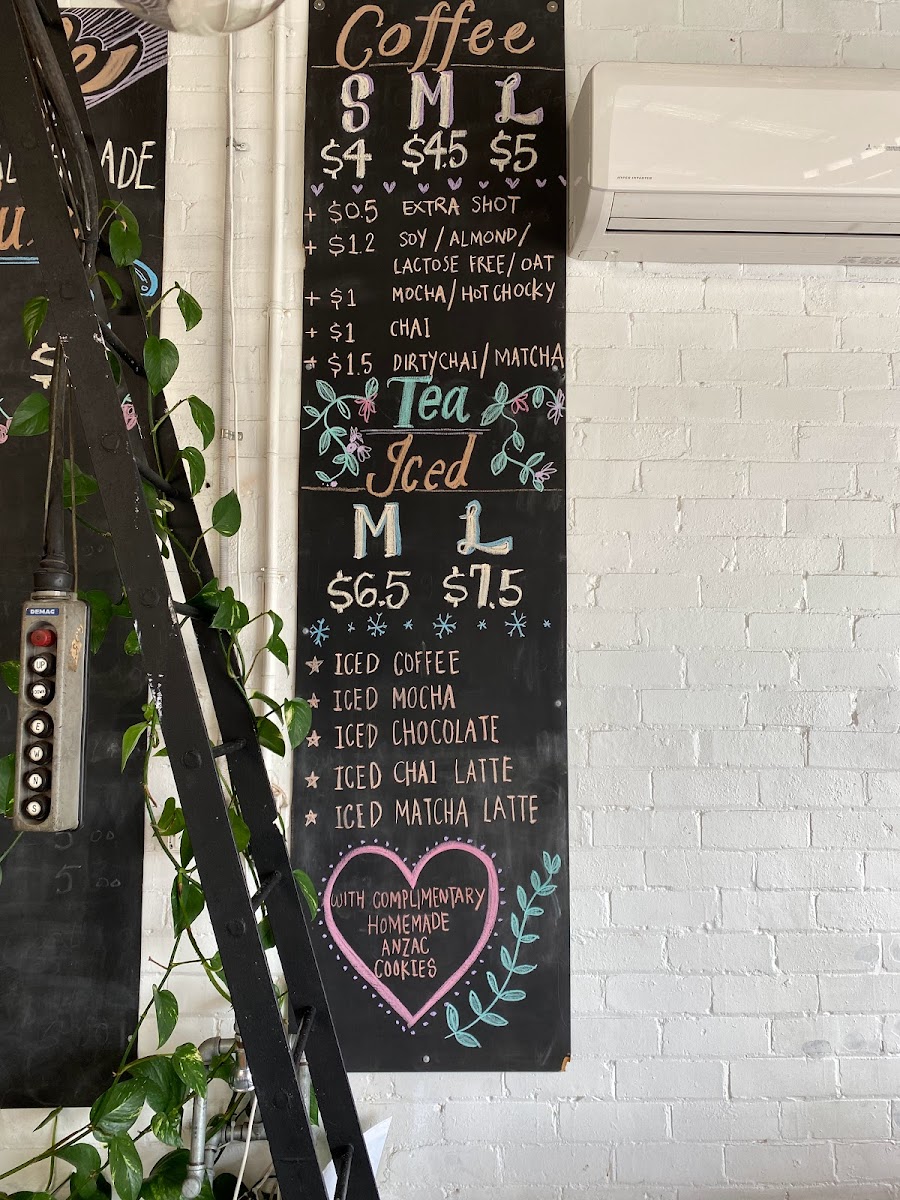 ADE
Coffee
S M L
$4 $4.5 $5
+ $0.5 EXTRA SHOT
+ $1.2 SOY / ALMOND /
LACTOSE FREE / OAT
+ $1 MOCHA / HOT CHOCKY
+ $1 CHAI
+ $1.5 DIRTY CHAI / MATCHA
Tea
Iced
M L
$6.5 $7.5
ICED COFFEE
ICED MOCHA
ICED CHOCOLATE
ICED CHAI LATTE
ICED MATCHA LATTE
WITH COMPLIMENTARY
HOMEMADE
ANZAC
COOKIES
DEMAG
UP
DOWN
E
W
N
S
HYPER INVERTER